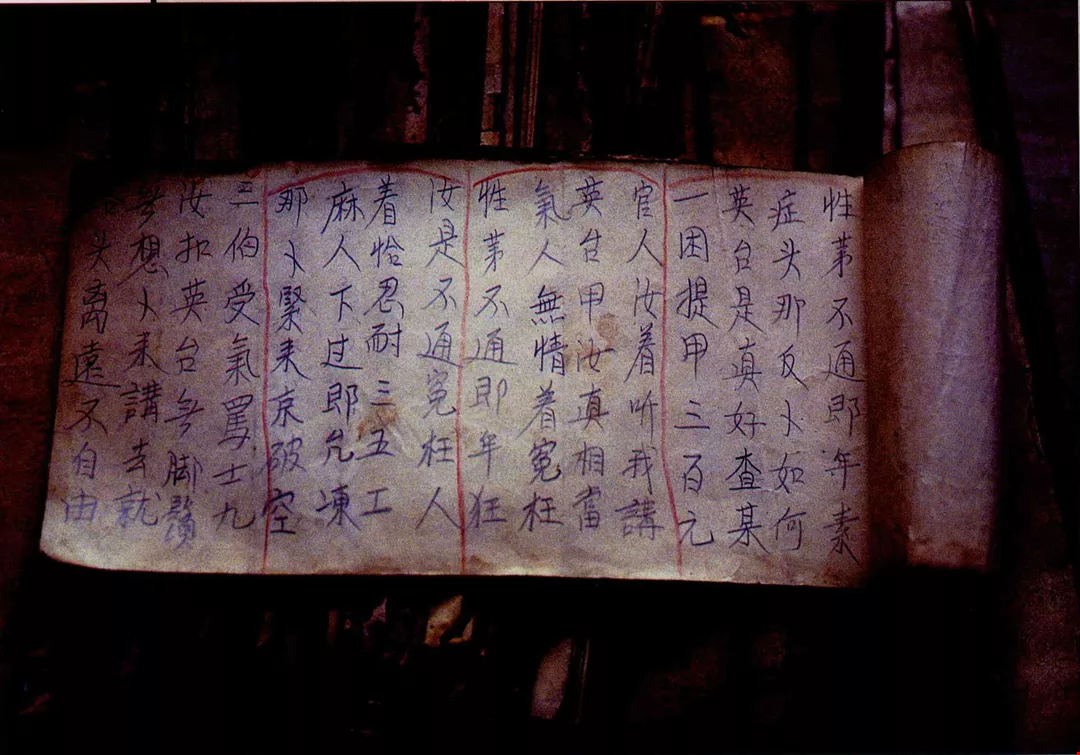 性苐不通郎年素
症头那反卜如何
英台是真好查某
一困提甲三百元
官人汝着听我講
英台甲汝真相當
氣人無情着冤枉
性苐不通郎年狂
汝是不通冤枉人
着恰忍耐三五工
麻人下过郎允凍
那卜緊来京破空
三伯受氣罵士九
汝扣英台无脚鬚
无想卜来講去就
头离遠不自由